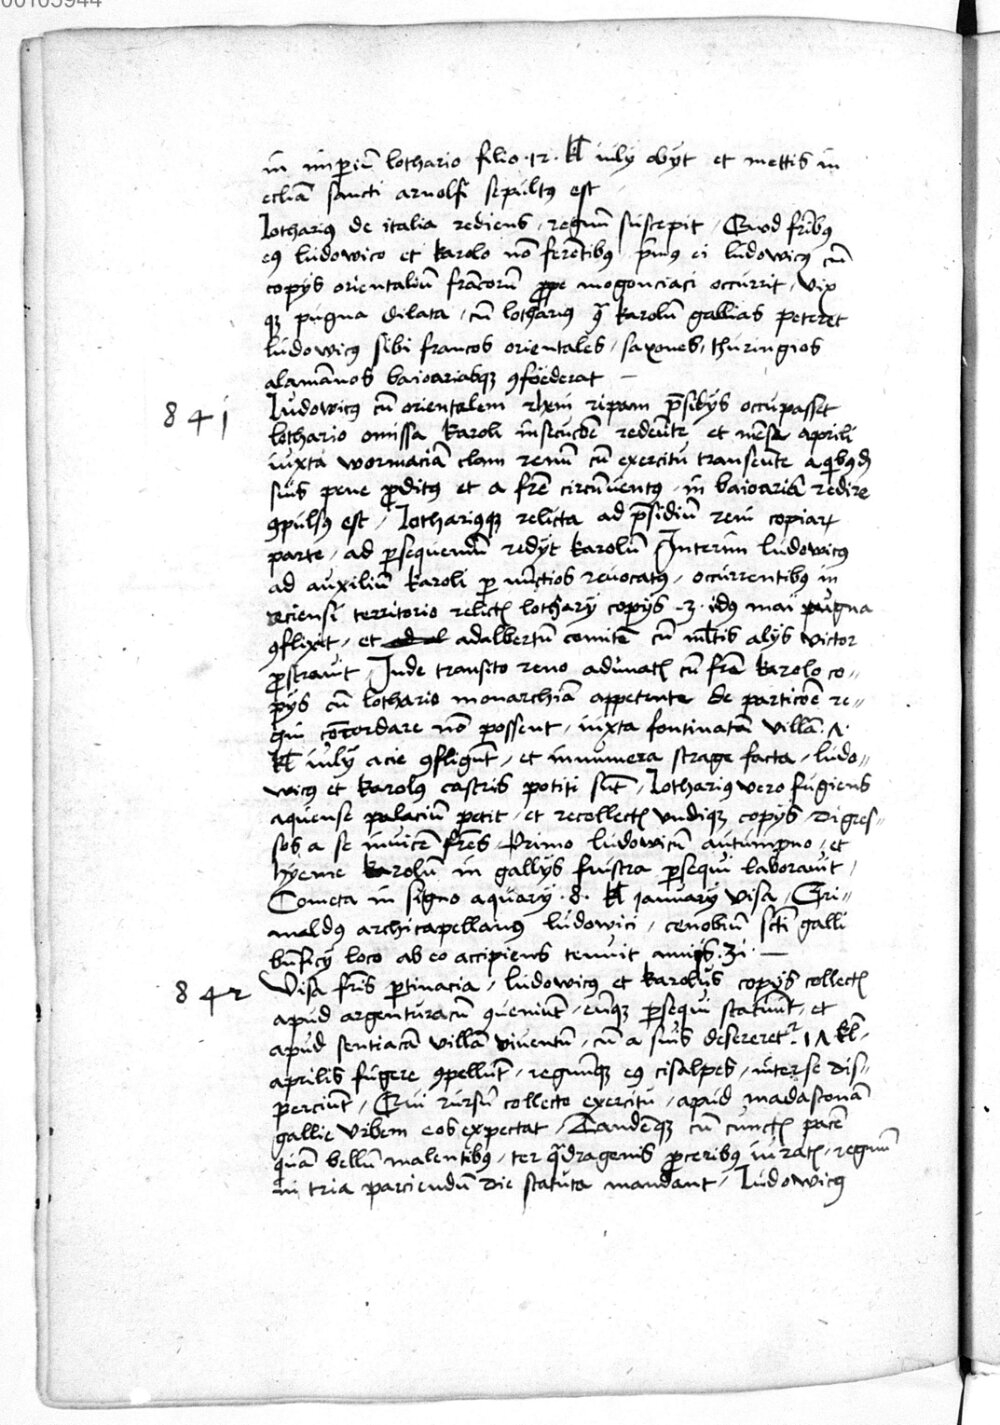 00103944
in imperiū lothario filio .12. kl̄ iulij obijt et mettis in
eccliā sancti arnolfi sepultus est
Lotharius de italia rediens, regnū suscepit, Quod fribus
eius ludowico et karolo nō ferētibus prīus ei ludowicus cū
copijs orientaliū francorū prope mogonciaci occurrit, vix
qz pugna dilata, cū lotharius qͣ karolū gallias peteret
ludowicus sibi francos orientales, saxones, thuringios
alamānos baioariasqz ꝯfoederat —
841 Ludowicus cū orientalem rheni ripam p̄sidijs occupasset
lothario omissa karoli insecucōe redeūte et mēse aprili
iuxta wormaciā clam renū cū exercitu transeunte a quibusdā
suis pene proditus et a frē circūuentus, in baioariā redire
ꝯpulsus est, Lothariusqz relicta ad p̄sidiū reni copiarꝝ
parte, ad persequendū redijt karolū Interim ludowicus
ad auxiliū karoli per nūctios reuocatus, occurrentibus in
reciensi territorio relictis lotharij copijs .3. idus maij pugna
ꝯflixit, et adalbertū comitē cū mltis alijs victor
prostrauit, Inde transito reno adunatis cū frē karolo co-
pijs cū lothario monarchiā appetente de particōe re-
gni concordare nō possent, iuxta fontinatā villā .7.
kl̄ iulij acie ꝯfligūt, et innumera strage facta, ludo-
wicus et karolus castris potiti sūt, Lotharius vero fugiens
aquense palaciū petit, et recollectis vndiqz copijs, digres-
sos a se inuicē frēs Primo ludowicū autumpno, et
hyeme karolū in gallijs frustra persequi laborauit,
Cometa in signo aquarij .8. kl̄ ianuarij visa, Gri-
maldus archicapellanus ludowici, cenobiū scti galli
bnficij loco ab eo accipiens tenuit annis .31. —
842 Visa fris pertinacia, ludowicus et karolus copijs collectis
apud argenturacū ꝯueniūt, eūqz persequi statuūt, et
apud sentiacā villā viuentū, cū a suis desereretur 17 kl̄.
aprilis fugere ꝯpellūt, regnūqz eius cisalpes, inter se dis-
perciūt, Qui rursū collecto exercitu, apud madasconā
gallie vrbem eos expectat, Tandēqz cū cunctis pacē
quā bellū malentibus, ter quadragenis proceribus iuratis, regnū
in tria parciendū die statuta mandant, Ludowicus